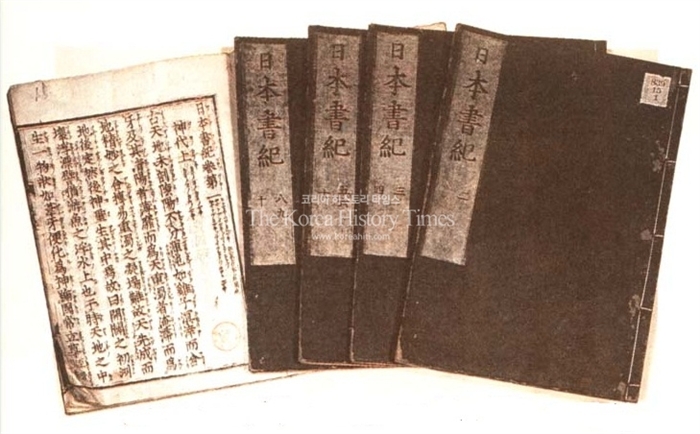 日本書紀卷第一
神代上
古天地未剖陰陽不分渾沌如雞子溟涬而含
牙及其清陽者薄靡而爲天重濁者淹滯而爲
地精妙之合搏易重濁之凝竭難故天先成而
地後定然後神聖生其中焉故曰開闢之初洲
壤浮漂譬猶游魚之浮水上也于時天地之中
生一物狀如葦牙便化爲神號國常立尊
日本書紀
八
十
日本書紀
五
日本書紀
三
四
日本書紀
코리아 히스토리 타임스
The Korea History Times
www.koreahiti.com